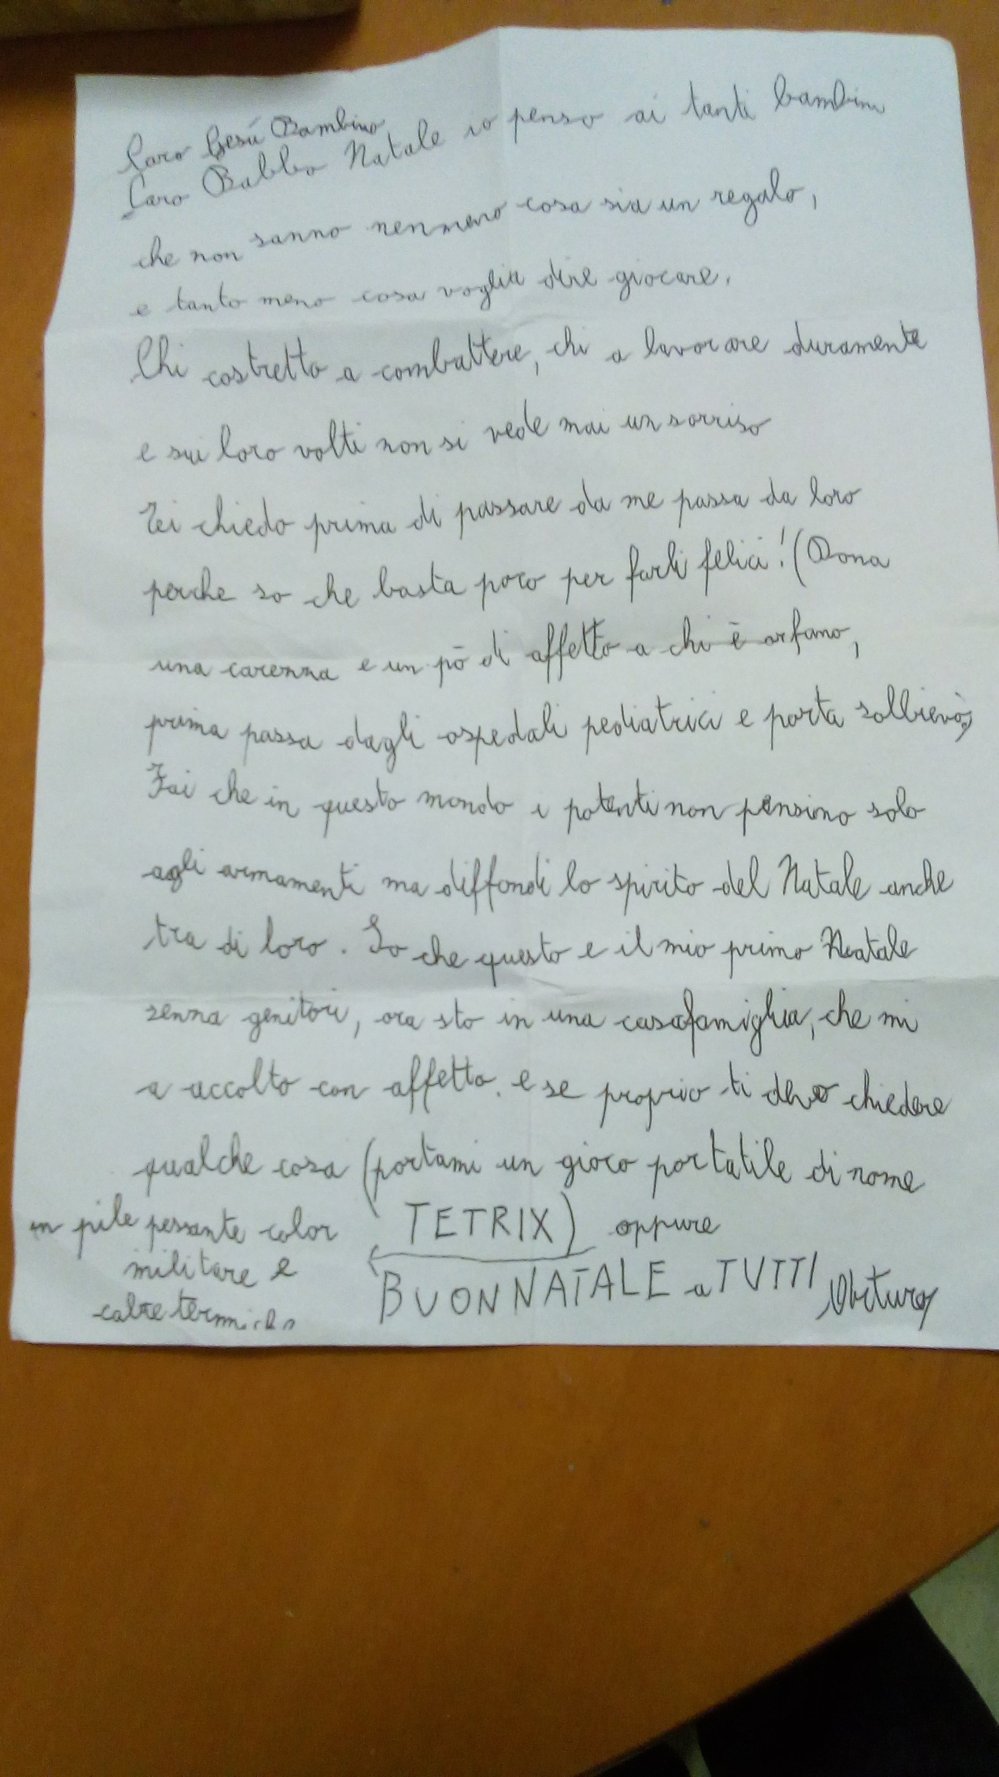 Caro Gesú Bambino
Caro Babbo Natale io penso ai tanti bambini
che non sanno nenmeno cosa sia un regalo,
e tanto meno cosa voglia dire giocare.
Chi costretto a combattere, chi a lavorare duramente
e sui loro volti non si vede mai un sorriso
Ti chiedo prima di passare da me passa da loro
perche so che basta poco per farli felici! (Dona
una carenza e un pò di affetto a chi è orfano,
prima passa dagli ospedali pediatrici e porta sollievo)
Fai che in questo mondo i potenti non pensino solo
agli armamenti ma diffondi lo spirito del Natale anche
tra di loro. So che questo e il mio primo Natale
senza genitori, ora sto in una casafamiglia, che mi
a accolto con affetto. e se proprio ti devo chiedere
qualche cosa (portami un gioco portatile di nome
TETRIX) oppure
un pile pesante color
militare e
calze termiche
BUON NATALE a TUTTI